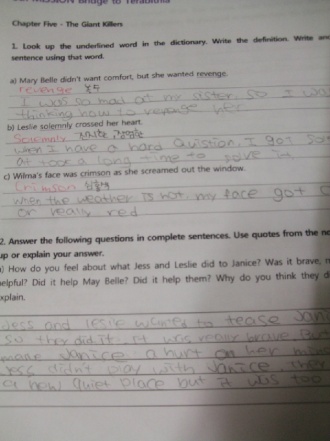 Bridge to Terabithia
Chapter Five - The Giant Killers
1. Look up the underlined word in the dictionary. Write the definition. Write and
sentence using that word.
a) Mary Belle didn't want comfort, but she wanted revenge.
revenge 복수
I was so mad at my sister so I wa
thinking how to revenge her
b) Leslie solemnly crossed her heart.
Solemnly
when I have a hard Quistion, I got Sol
at took a long time to solve it
c) Wilma's face was crimson as she screamed out the window.
Crimson
when the weather is hot, my face got C
or really red
2. Answer the following questions in complete sentences. Use quotes from the no
up or explain your answer.
) How do you feel about what Jess and Leslie did to Janice? Was it brave, m
helpful? Did it help May Belle? Did it help them? Why do you think they d
xplain.
Jess and leslie wanted to tease Jani
So they did it. it was really brave
Janice a hurt on her
didn't play with Janice
a new quiet place but it was too